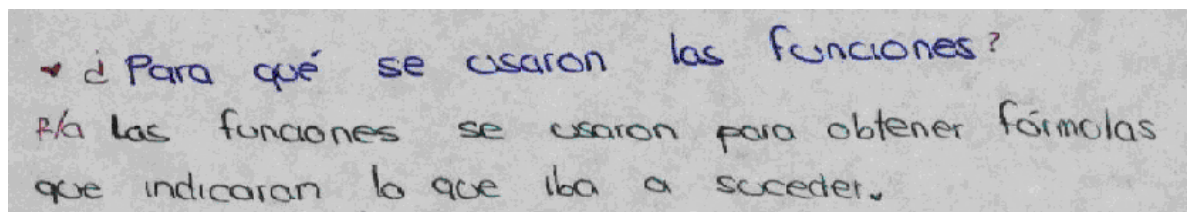 ¿Para qué se usaron las funciones?
R/a Las funciones se usaron para obtener fórmulas
que indicaran lo que iba a suceder.